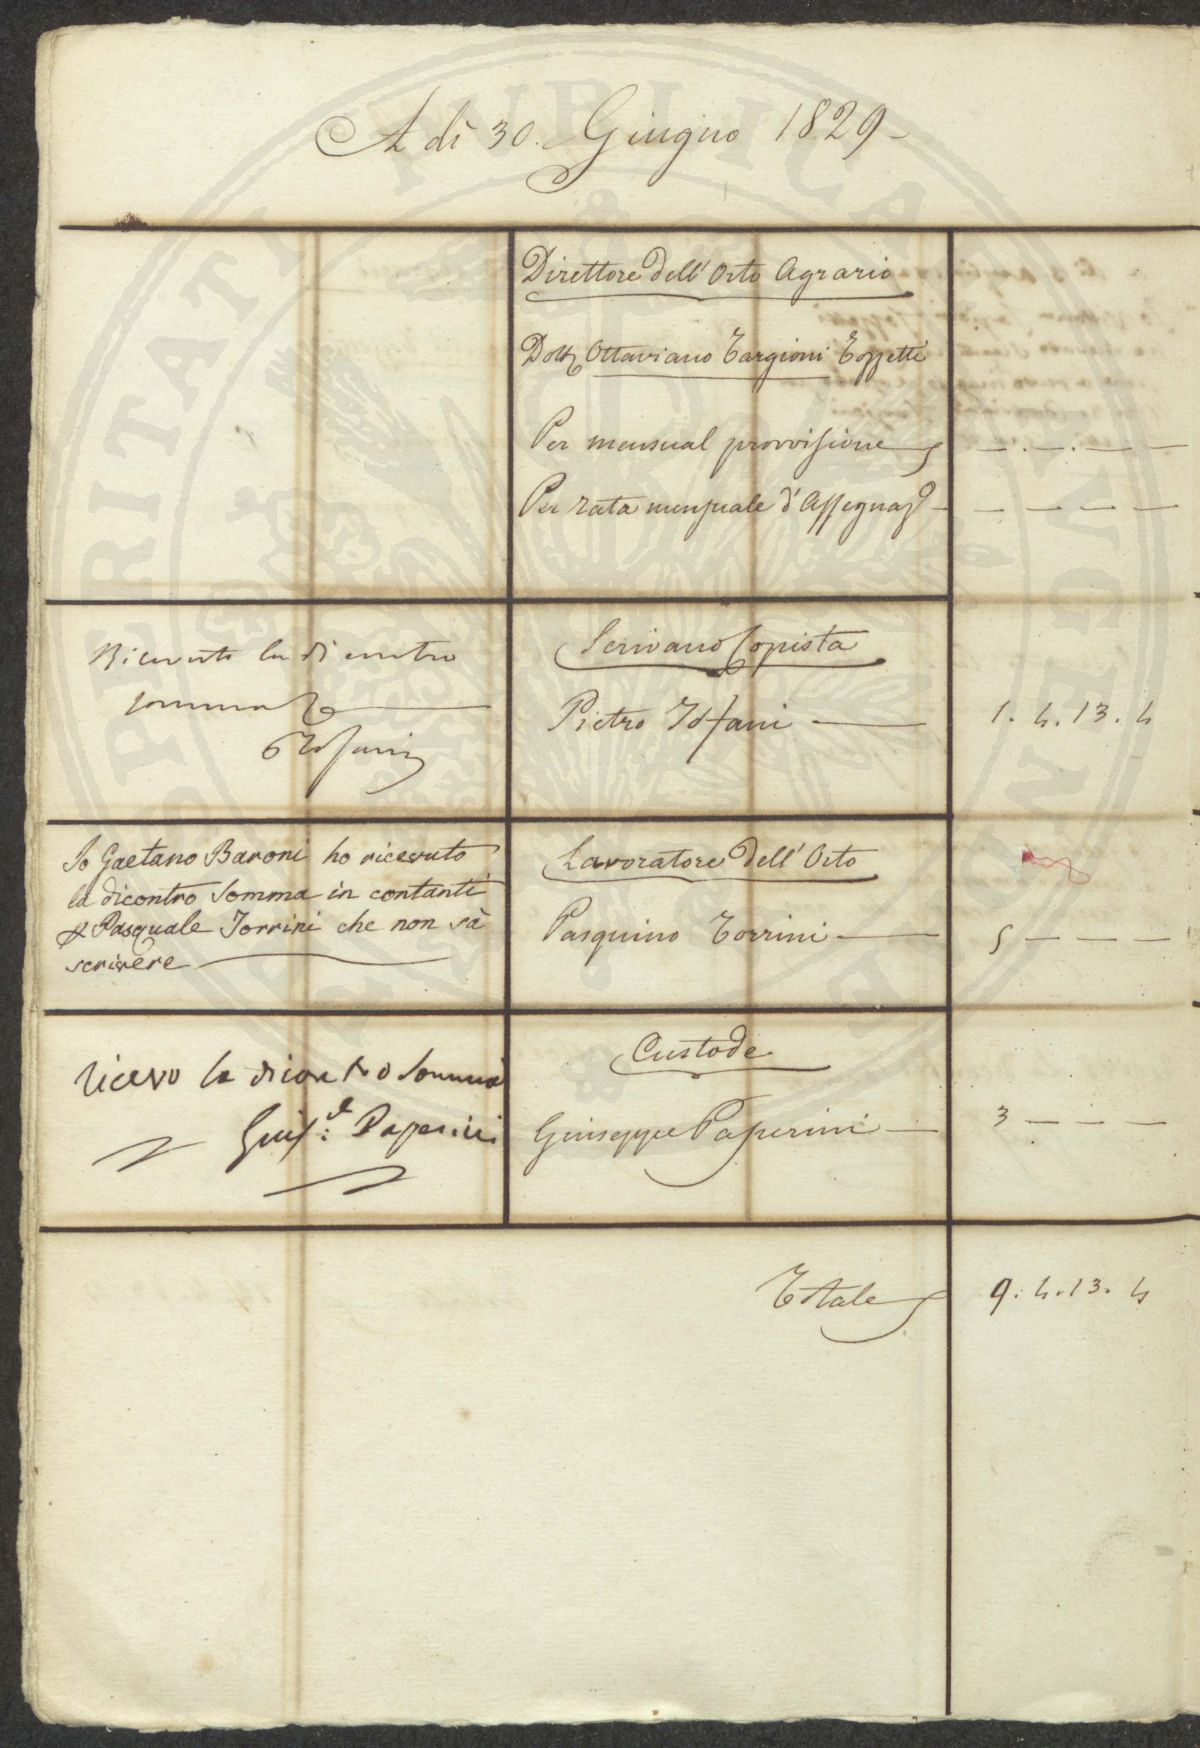 A dì 30. Giugno 1829
Direttore dell' Orto Agrario
Dott. Ottaviano Targioni Tozzetti
Per mensual provvisione — . — . — —
Per rata mensuale d'Assegnaz.e — — — —
Scrivano Copista
Ricevuto la di contro
somma
Tofani
Pietro Tofani — 1. 4. 13. 4
Io Gaetano Baroni ho ricevuto
la dicontro Somma in contanti
p Pasquale Torrini che non sà
scrivere
Lavoratore dell' Orto
Pasquino Torrini — 5 — — —
Custode
ricevo la dicontro Somma
Giuse: Paperini
Giuseppe Paperini — 3 — — —
Totale 9. 4. 13. 4
PUBLICAE
PROSPERITATI